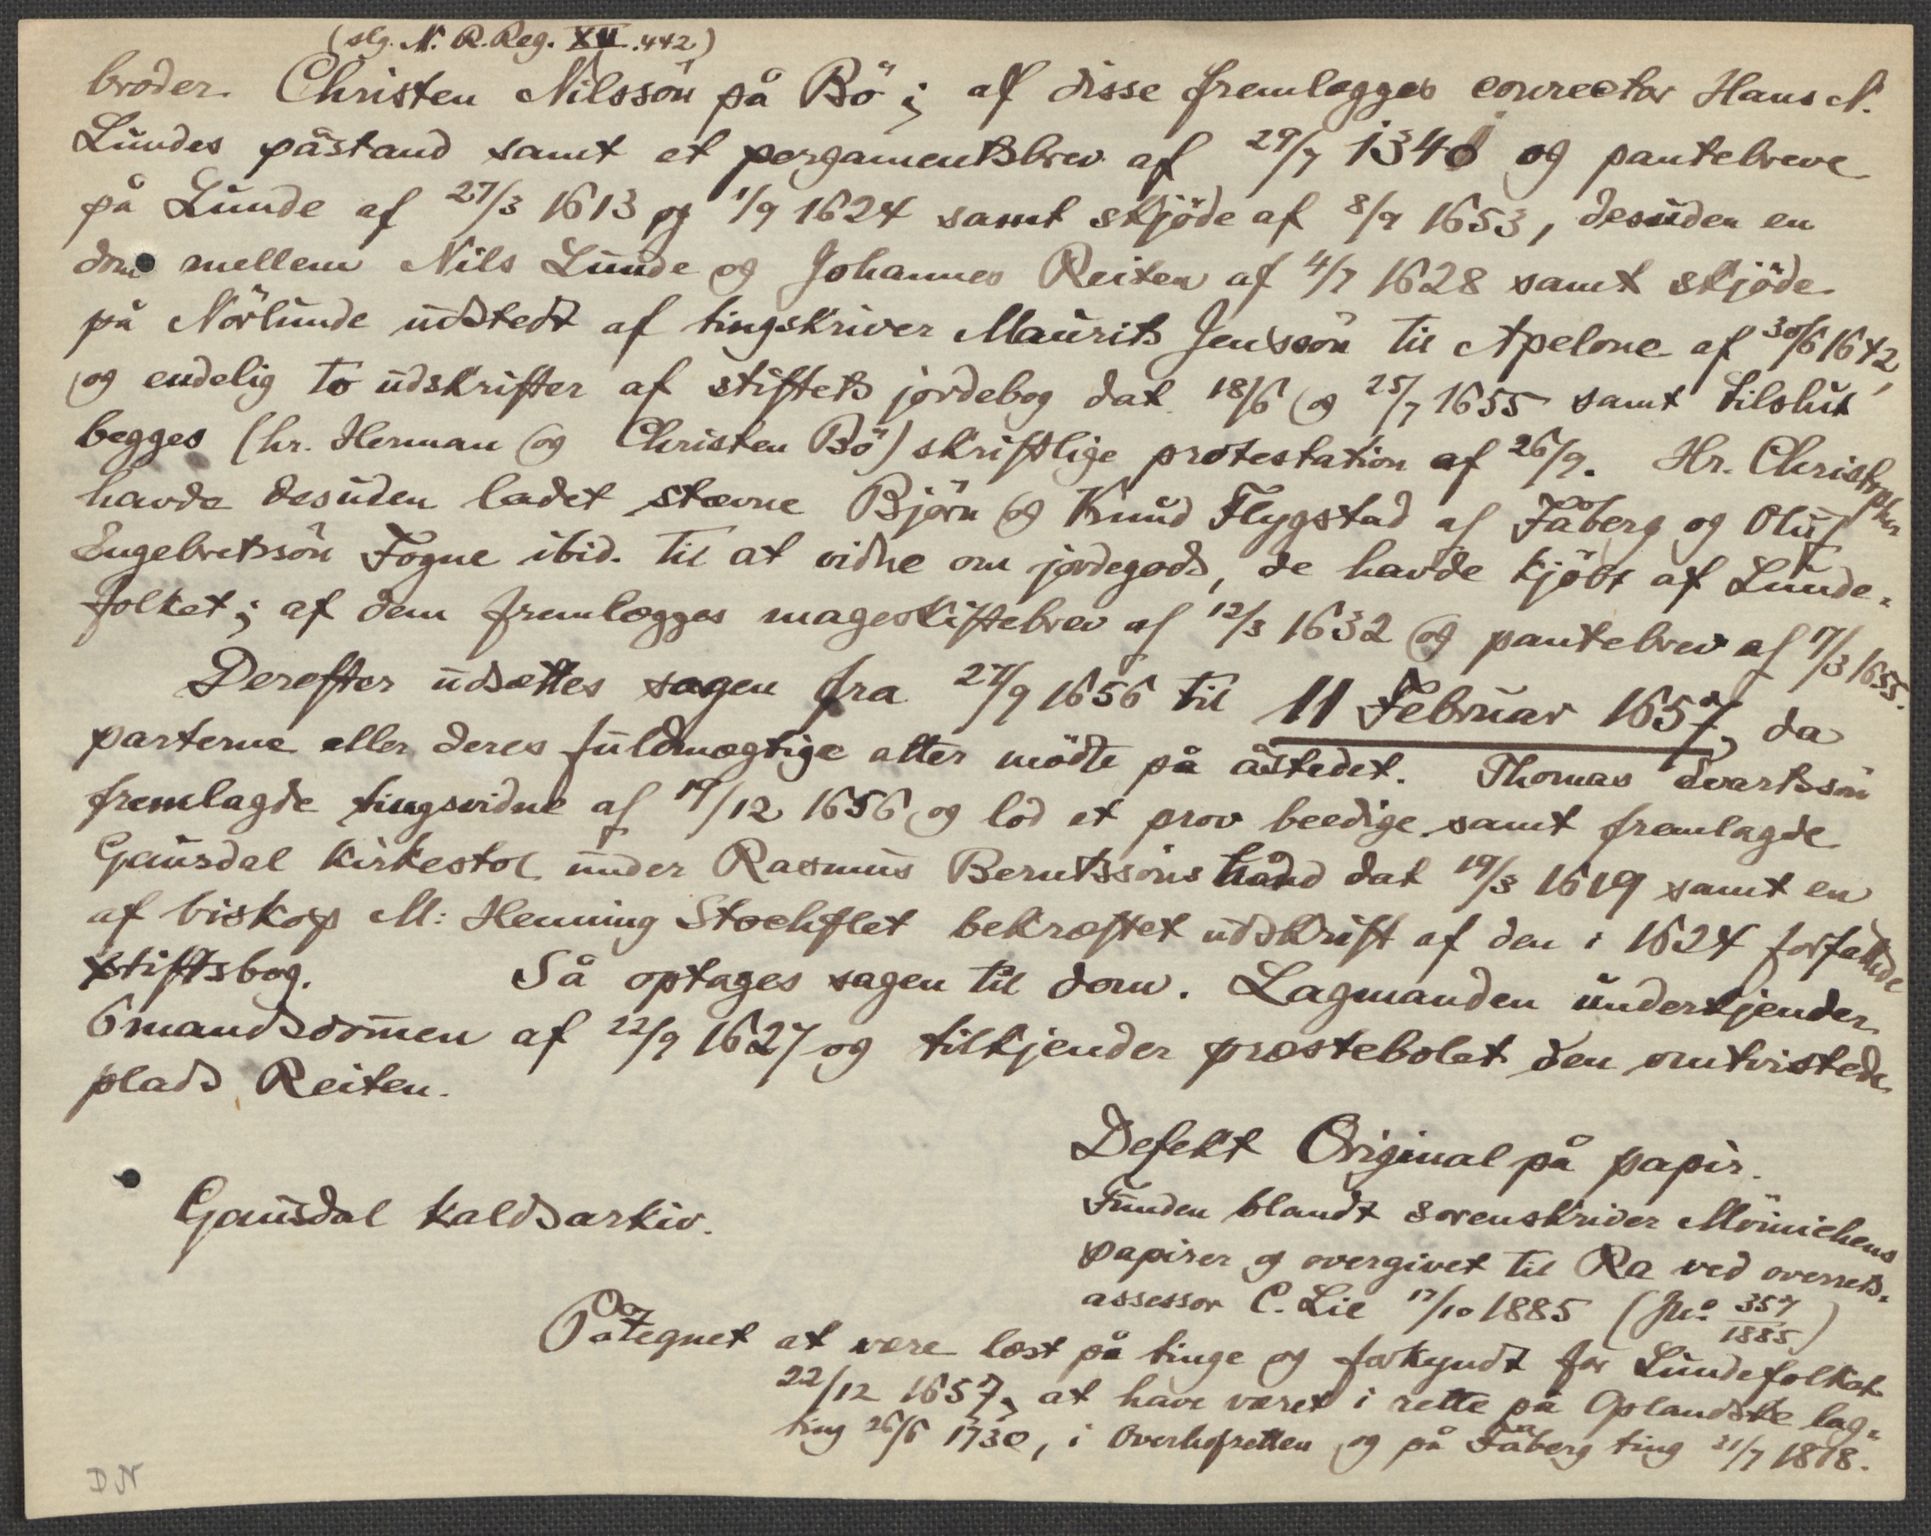 (slg. N. R. Reg. XII. 442)
broder Christen Nilssön på Bö; af disse fremlægges conrector Hans N.
Lundes påstand samt et pergamentsbrev af 29/7 1340 og pantebreve
på Lunde af 27/3 1613 og 1/9 1624 samt skjöde af 8/9 1653, desuden en
dom mellem Nils Lunde og Johannes Reiten af 4/7 1628 samt skjöde
på Nörlunde udstedt af tingskriver Maurits Jenssön til Apelone af 30/6 1642,
og endelig to udskrifter af stiftets jordebog dat. 18/6 og 25/7 1655 samt tilslut
begges (hr. Herman og Christen Bö) skriftlige protestation af 26/9. Hr. Christopher
havde desuden ladet stævne Björn og Knud Flygstad af Fåberg og Oluf
Engebretssön Fogne ibid. til at vidne om jordegods, de havde kjöbt af Lunde-
folket; af dem fremlægges mageskiftebrev af 12/3 1632 og pantebrev af 7/3 1655.
Derefter udsættes sagen fra 27/9 1656 til 11 Februar 1657, da
parterne eller deres fuldmægtige atter mödte på åstedet. Thomas Evartssön
fremlagde tingsvidne af 19/12 1656 og lod et prov beedige samt fremlagde
Gausdal kirkestol under Rasmus Berntssöns hånd dat 19/3 1619 samt en
af biskop M: Henning Stochflet bekræftet udskrift af den i 1624 forfattede
stiftsbog. Så optages sagen til dom. Lagmanden underkjender
6mandsdommen af 22/9 1627 og tilkjender præstebolet den omtvistede
plads Reiten.
Defekt Original på papir.
Gausdal kaldsarkiv.
Funden blandt sorenskriver Mönichens
papirer og overgivet til Ra ved overrets-
assessor C. Lie 17/10 1885 (Jno 357/1885)
Påtegnet at være læst på tinge og forkyndt for Lundefolket
22/12 1657, at have været i rette på Oplandske lag-
ting 26/6 1730, i Overhofretten og på Fåberg ting 21/7 1818.
DN